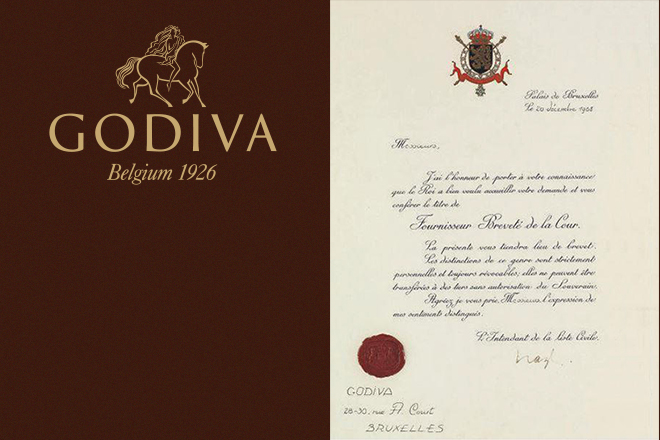 GODIVA
Belgium 1926
Palais de Bruxelles
Le 20 décembre 1968
Messieurs,
J'ai l'honneur de porter à votre connaissance
que le Roi a bien voulu accueillir votre demande et vous
conférer le titre de
Fournisseur Breveté de la Cour.
La présente vous tiendra lieu de brevet.
Les distinctions de ce genre sont strictement
personnelles et toujours révocables; elles ne peuvent être
transférées à des tiers sans autorisation du Souverain.
Agréez, je vous prie, Messieurs l'expression de
mes sentiments distingués.
L'Intendant de la Liste Civile.
GODIVA
28-30, rue A. Court
BRUXELLES